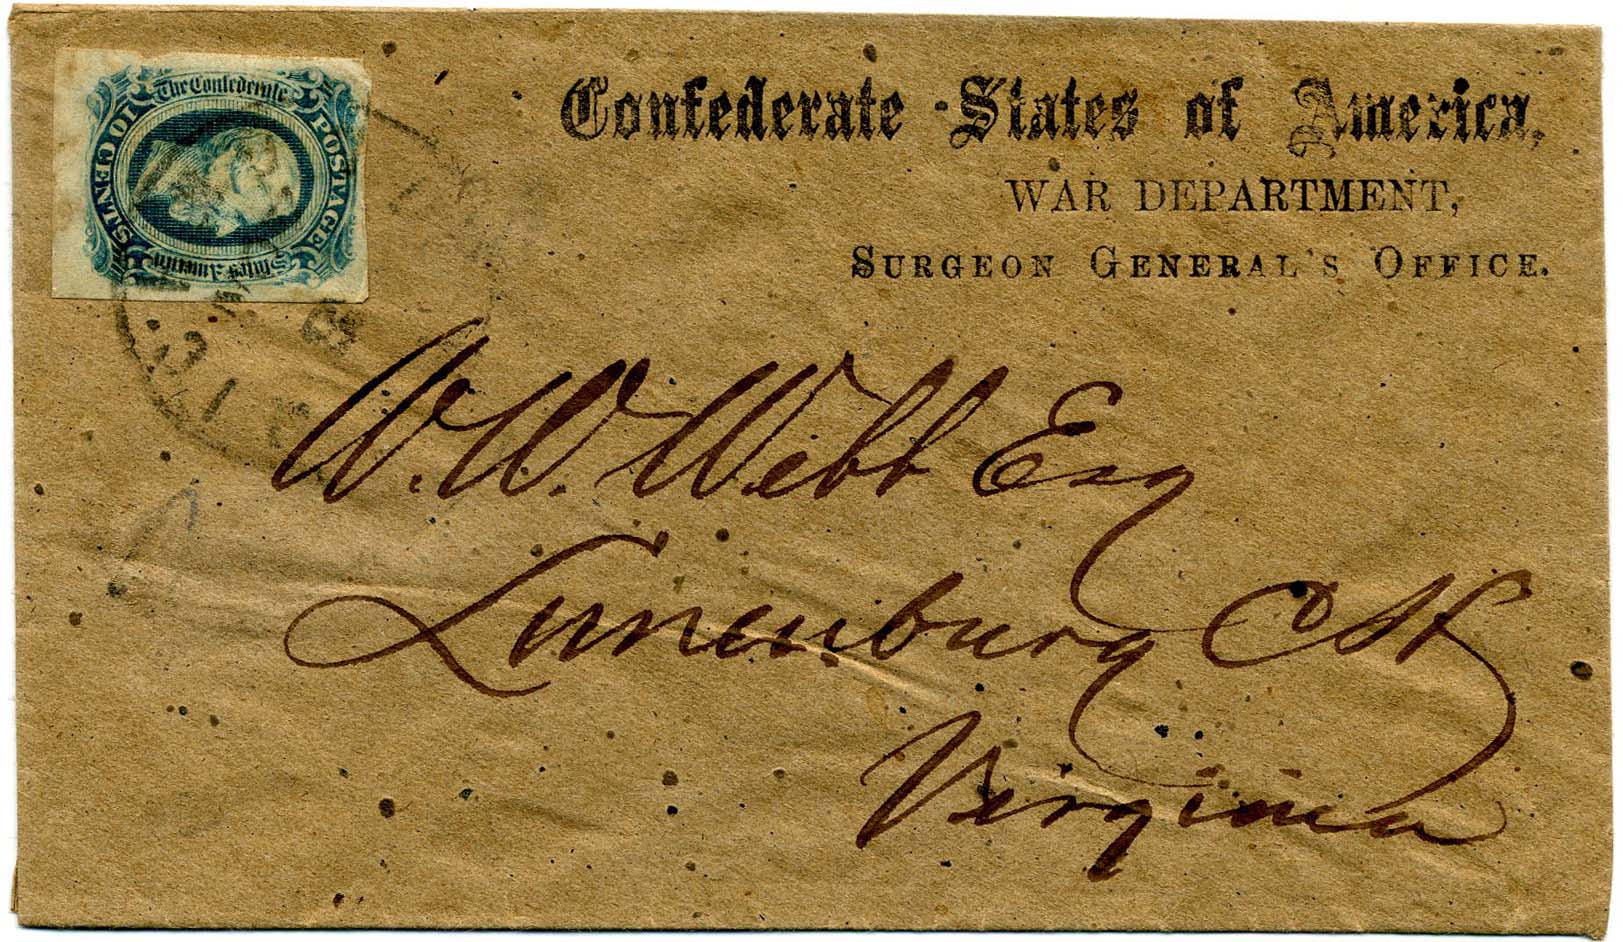 The Confederate
POSTAGE
States America
10 CENTS
Confederate States of America,
WAR DEPARTMENT,
SURGEON GENERAL'S OFFICE.
W. W. Webb Esq
Lunenburg C H
Virginia